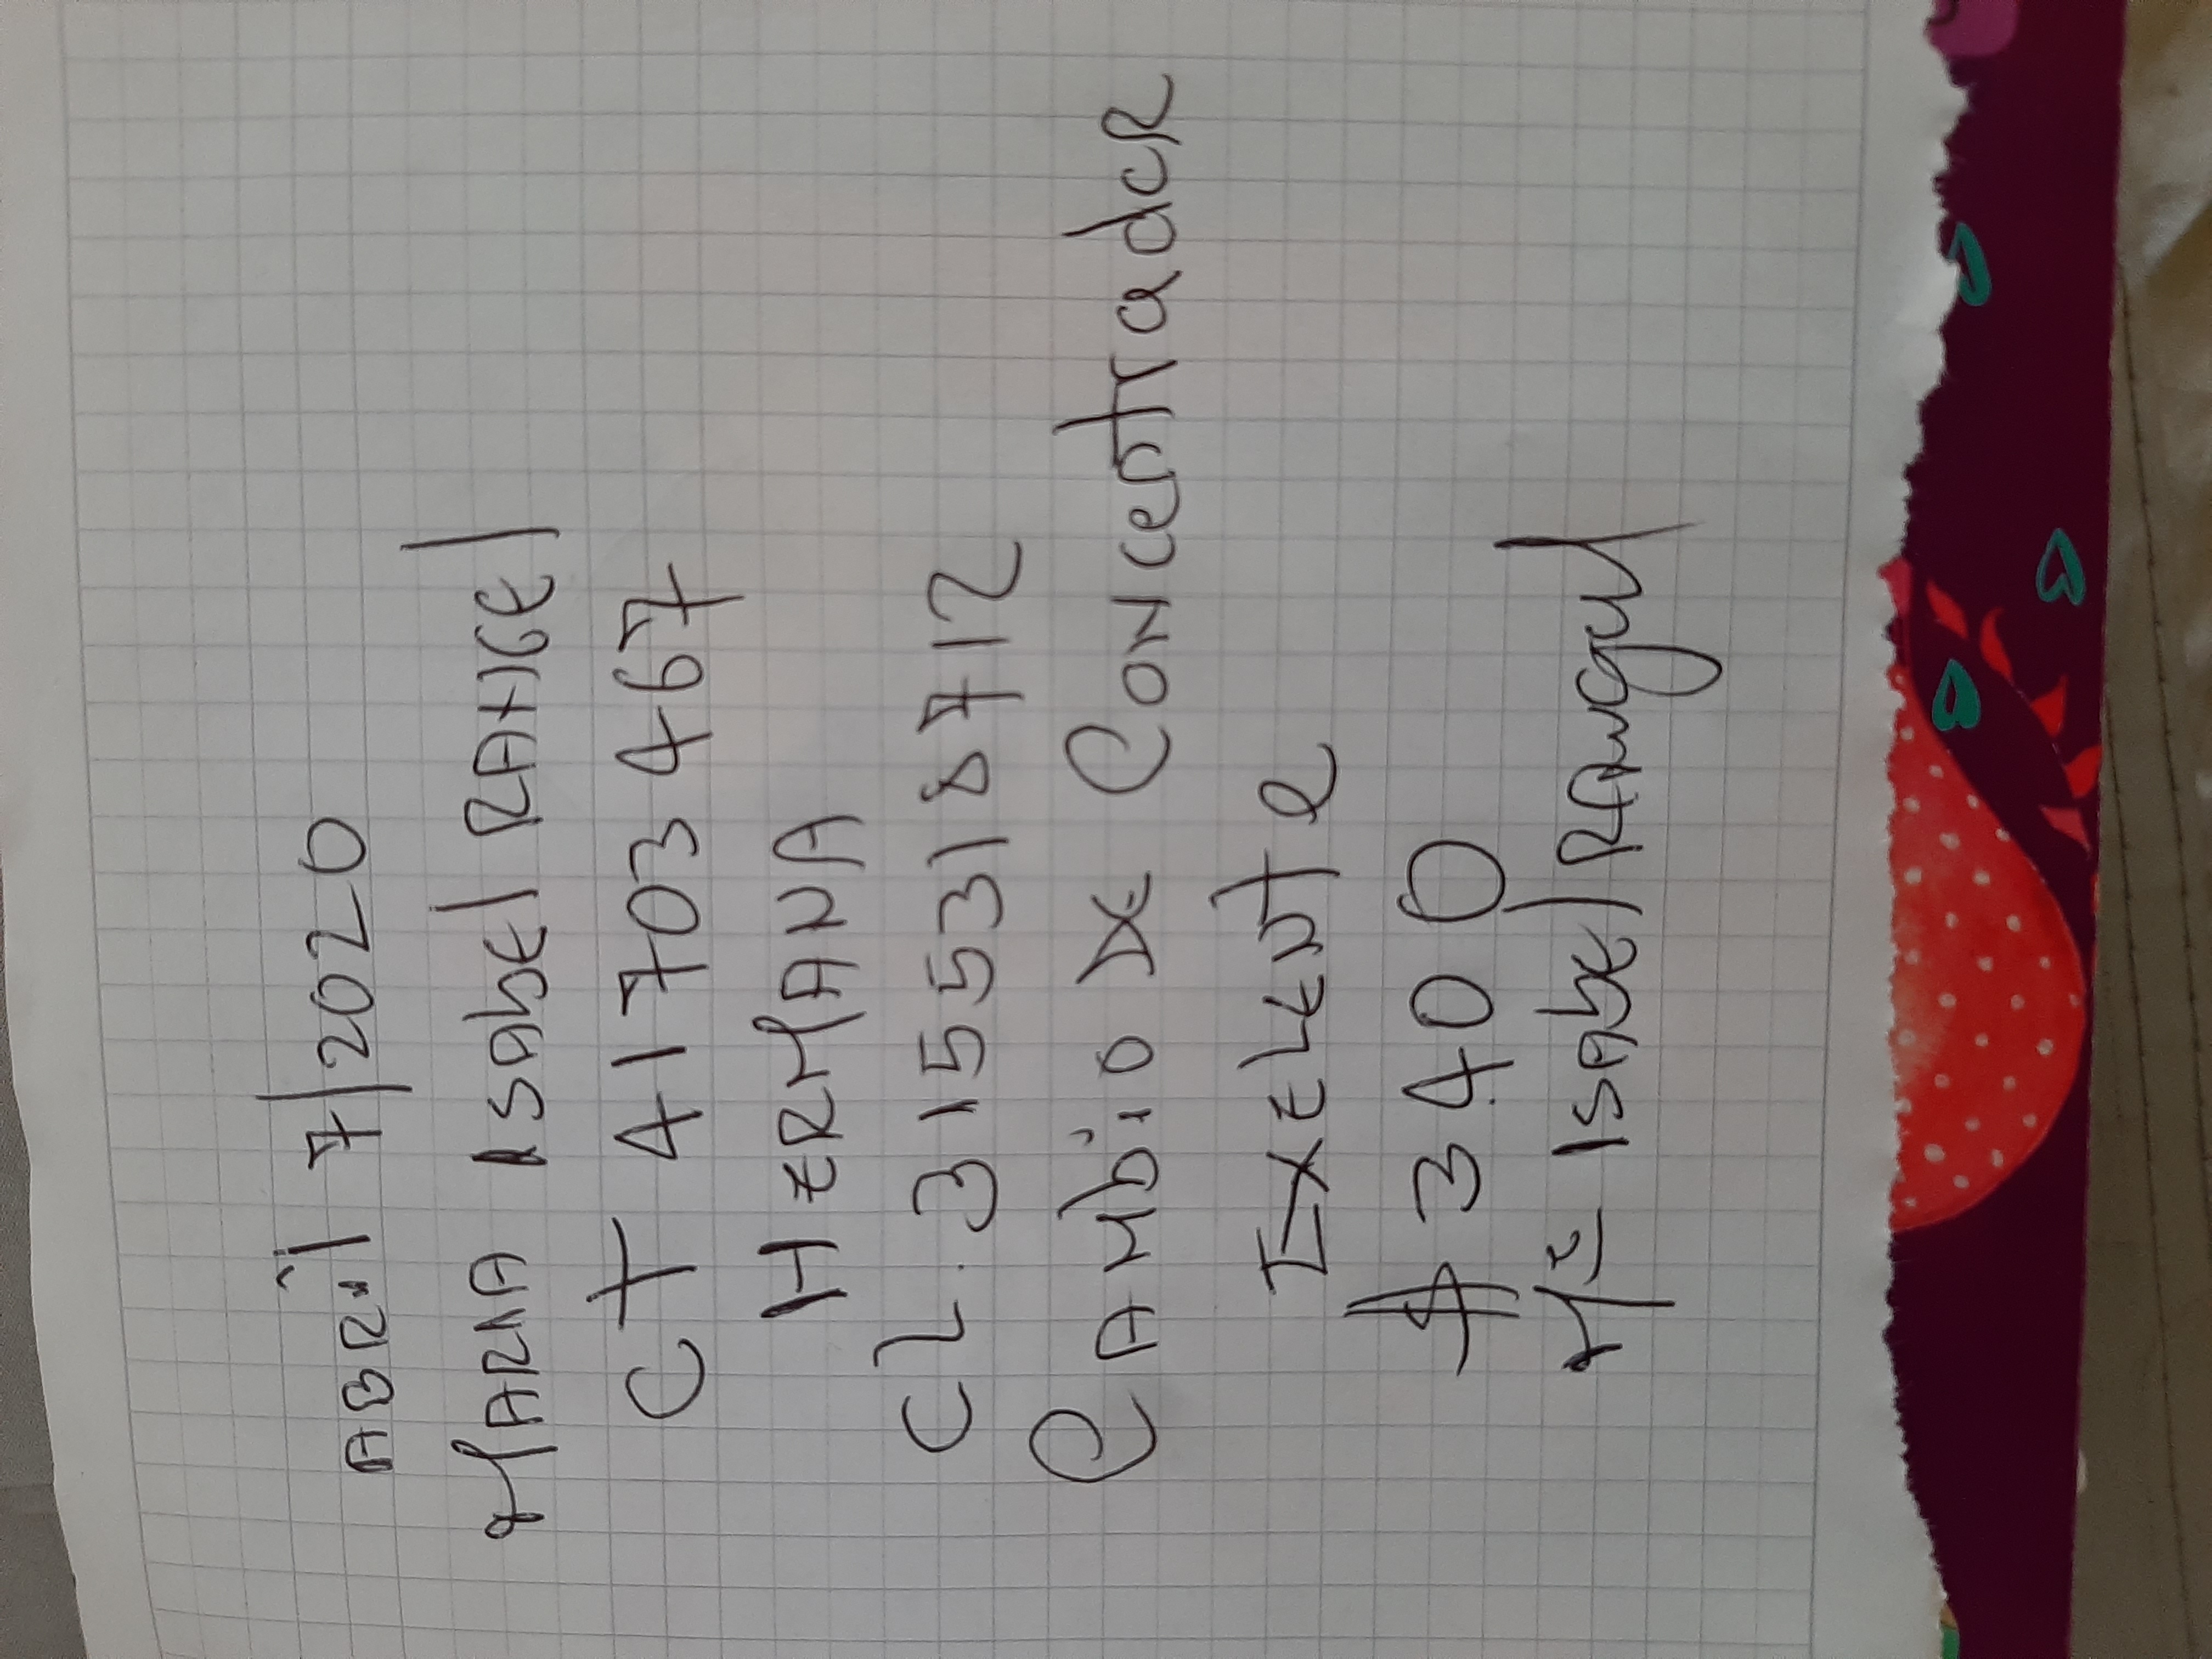 ABRil 7/2020
MARIA ISAbEl RANGEl
CT 41703467
HERMANA
CL. 3155318712
CAMbio DE Concentrador
EXELENTE
$3400
Mª ISAbEl RAngel